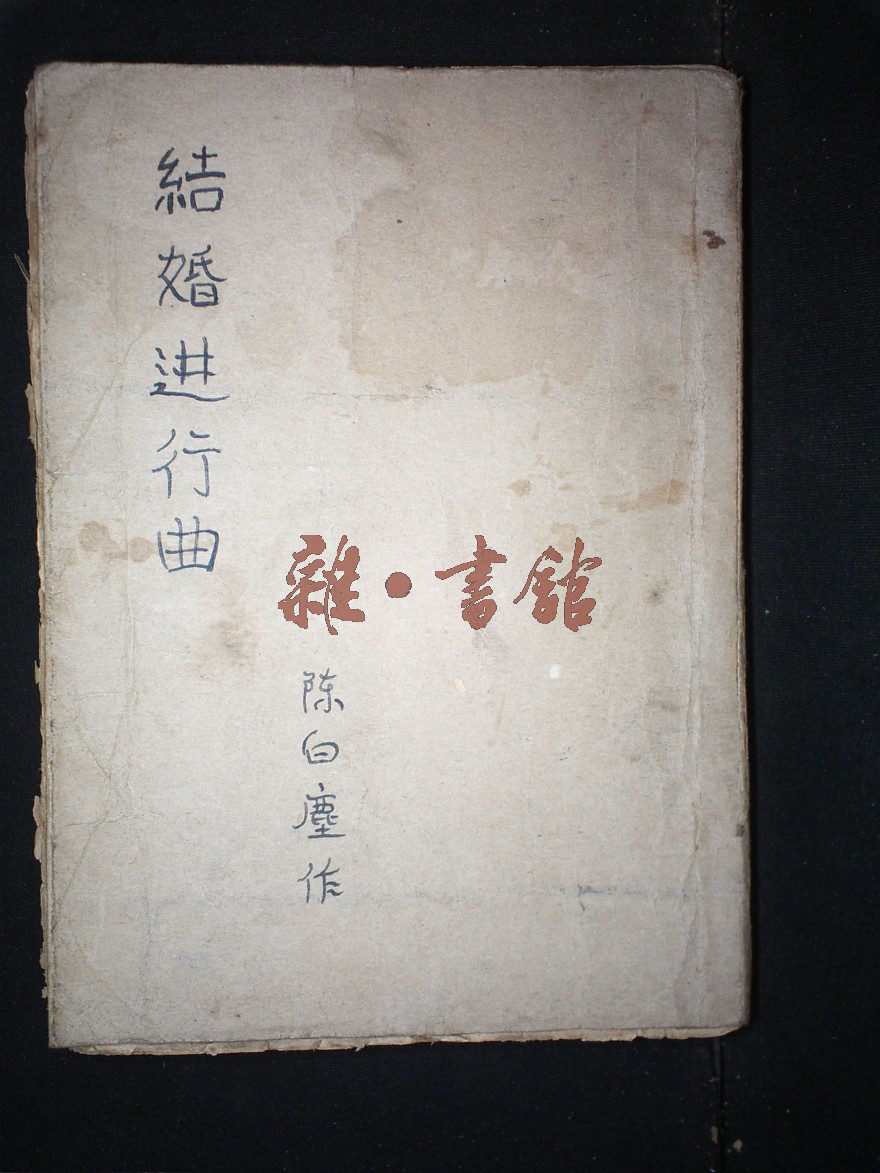 結婚进行曲
陈白塵作
雜·書館